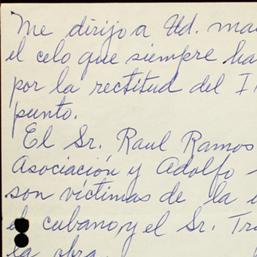 Me dirijo a Ud. ma
el celo que siempre ha
por la rectitud del I
punto.
El Sr. Raul Ramos
Asociación y Adolfo
son víctimas de la
el cubano, y el Sr. Tra
la obra